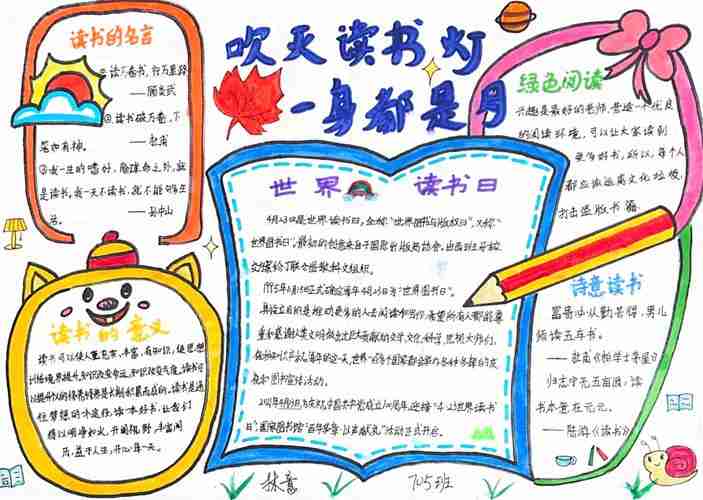 吹灭读书灯
一身都是月
读书的名言
①读万卷书，行万里路
——顾炎武
②读书破万卷，下
笔如有神。
——杜甫
③我一生的嗜好，除革命之外，就
是读书，我一天不读书，就不能够生
活。
——孙中山
绿色阅读
兴趣是最好的老师，营造一个优良
的阅读环境，可以让大家读到
更多好书，所以，每个人
都应该远离文化垃圾，
打击盗版书籍。
世界 读书日
4月23日是世界读书日，全称“世界图书与版权日”，又称“
世界图书日”，最初的创意来自于国际出版商协会，由西班牙转
交方案给了联合国教科文组织。
1995年11月15日正式确定每年4月23日为“世界图书日”。
其设立目的是推动更多的人去阅读和写作，希望所有人都能尊
重和感谢为人类文明做出过巨大贡献的文学、文化、科学、思想大师们，
保护知识产权。每年的这一天，世界一百多个国家都会举办各种各样的庆
祝和图书宣传活动。
2021年4月19日，为庆祝中国共产党成立100周年，迎接“4·23世界读书
日”，国家图书馆“百年
读书的意义
读书可以使人重充实、丰富、有知识，使思想
读书是通
往梦想的一个途径，读一本好书，让我们
得以明净如水，开阔视野，丰富阅
历，益于人生，开心每一天。
诗意读书
富贵必从勤苦得，男儿
须读五车书。
——杜甫《柏学士茅屋》
归志宁无五亩园，读
书本意在元元。
——陆游《读书》
林意 705班